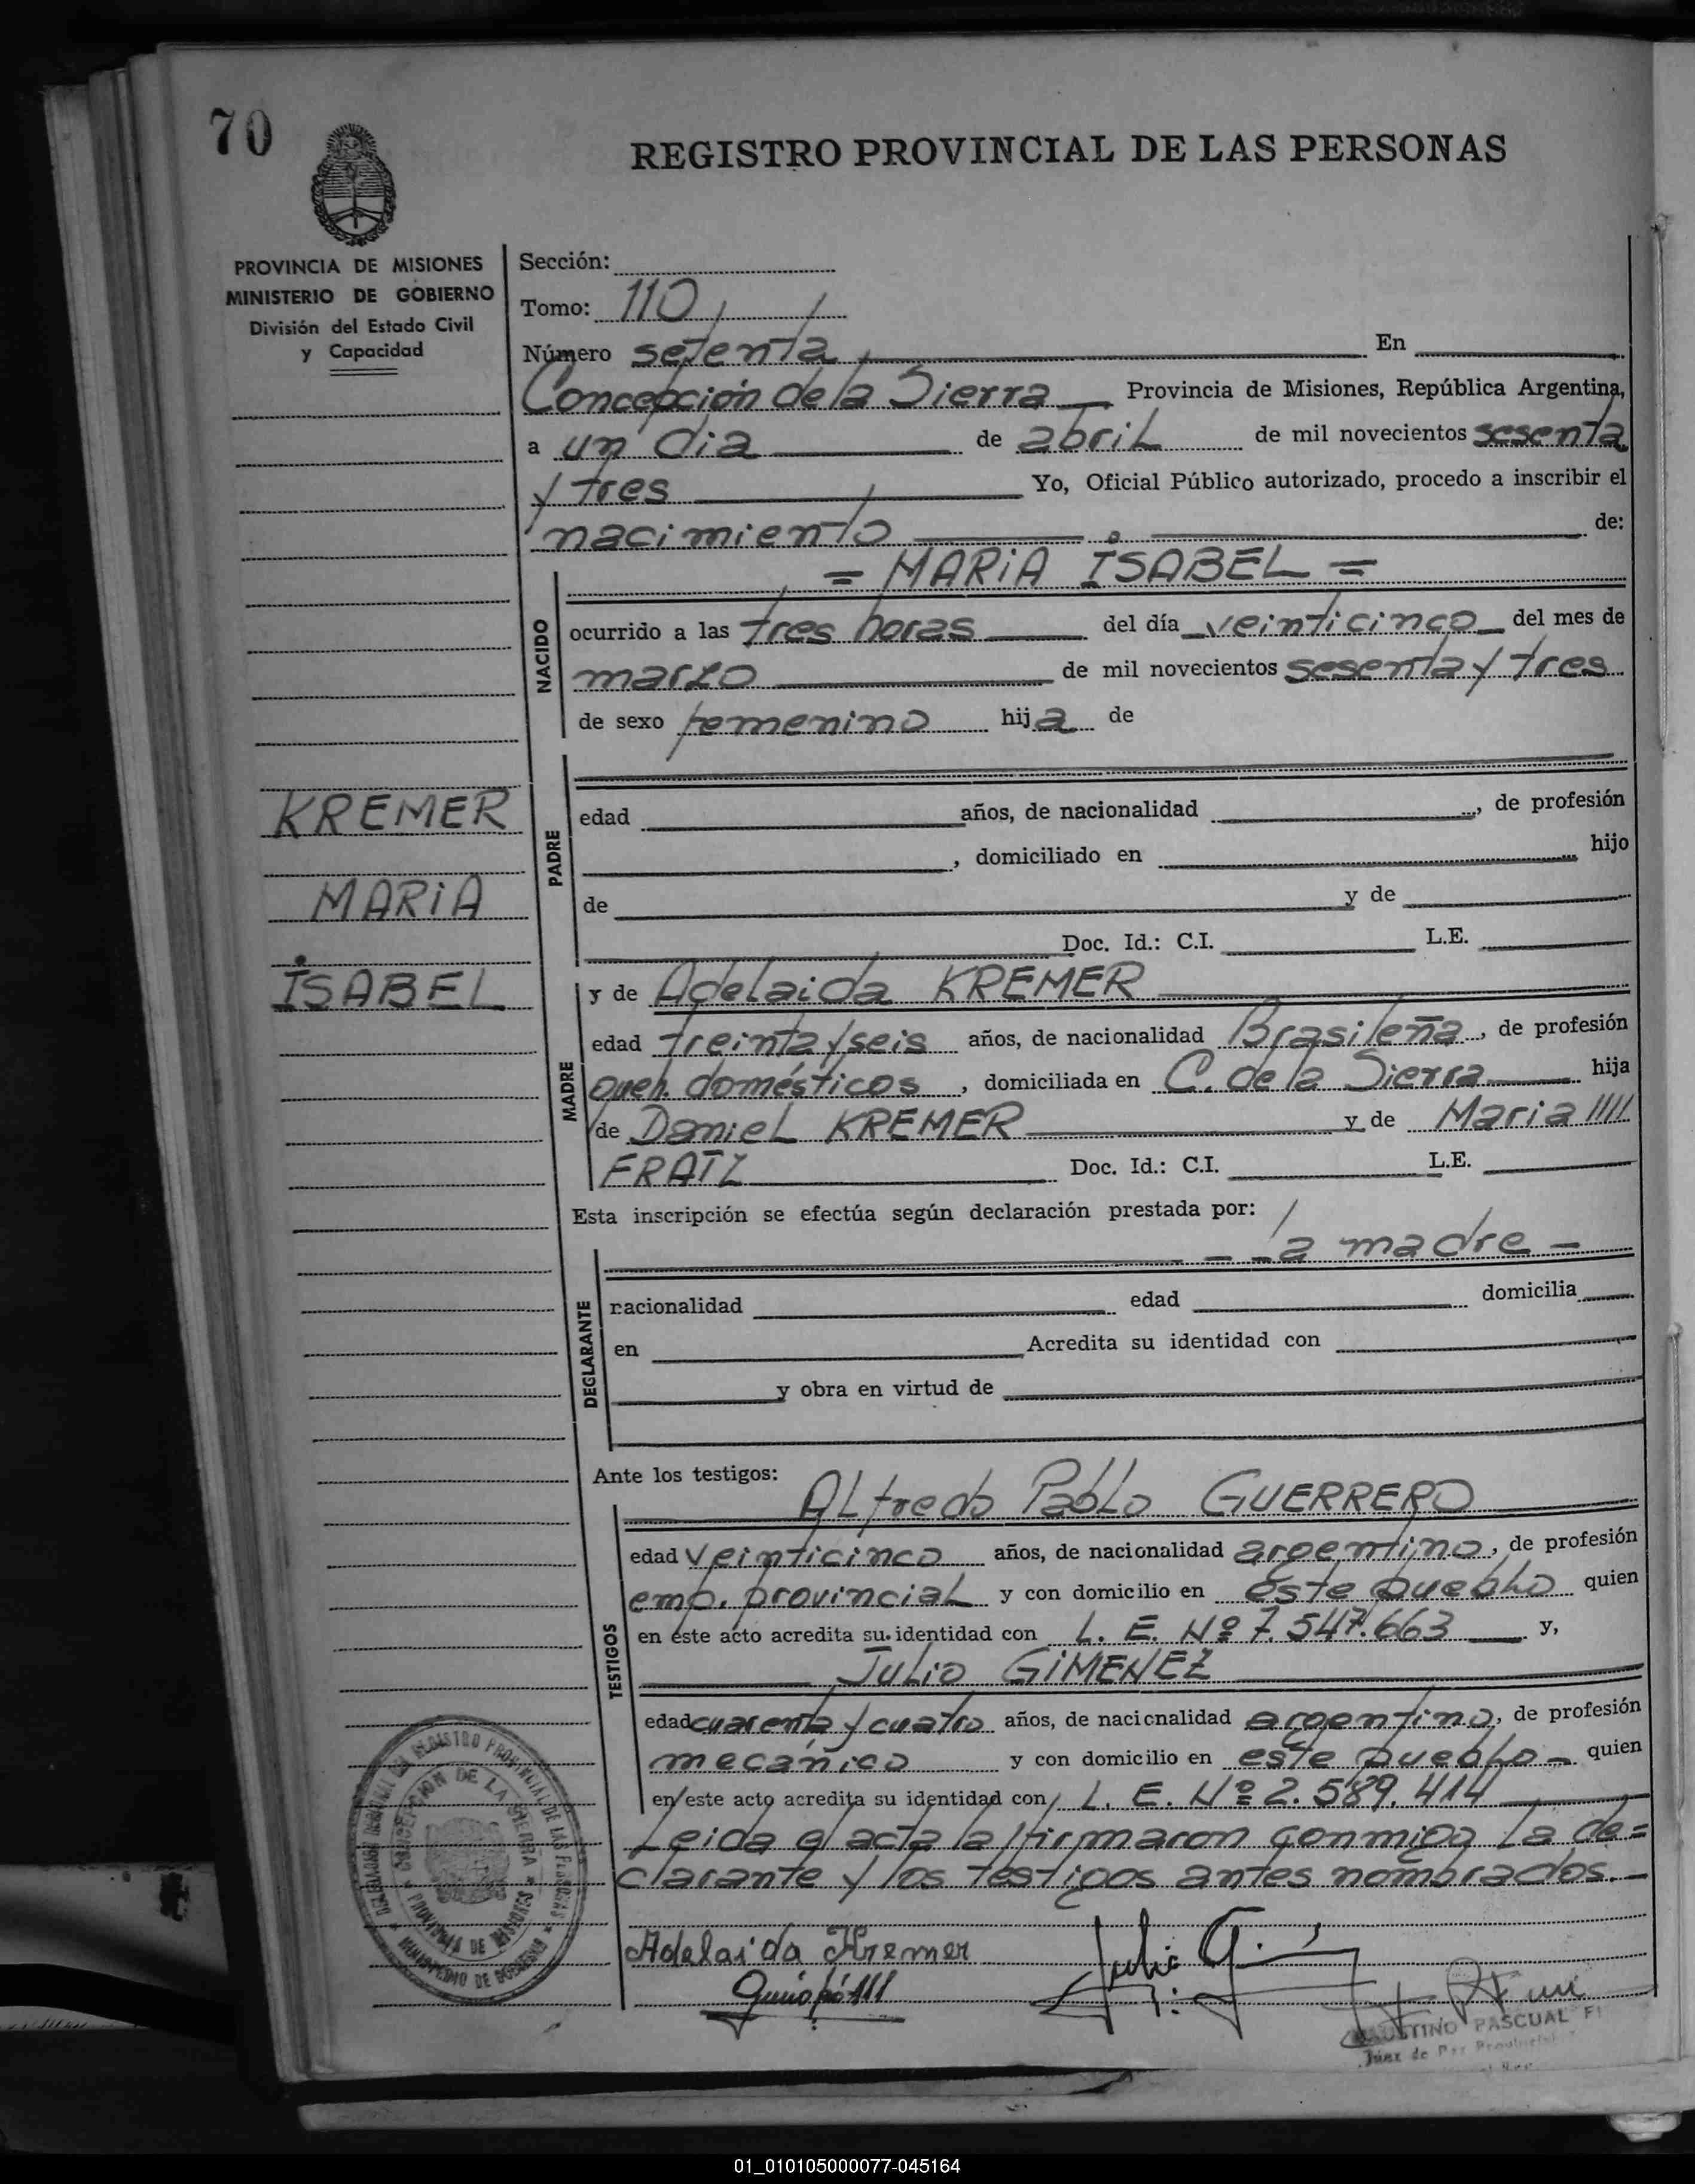 70
REGISTRO PROVINCIAL DE LAS PERSONAS
PROVINCIA DE MISIONES
MINISTERIO DE GOBIERNO
División del Estado Civil
y Capacidad
Sección:
Tomo: 110
Número setenta En
Concepción de la Sierra Provincia de Misiones, República Argentina,
a un dia de abril de mil novecientos sesenta
y tres Yo, Oficial Público autorizado, procedo a inscribir el
nacimiento de:
= MARIA ISABEL =
NACIDO
ocurrido a las tres horas del día veinticinco del mes de
marzo de mil novecientos sesenta y tres
de sexo femenino hija de
PADRE
edad años, de nacionalidad , de profesión
, domiciliado en hijo
de y de
Doc. Id.: C.I. L.E.
KREMER
MARIA
ISABEL
MADRE
y de Adelaida KREMER
edad treinta y seis años, de nacionalidad Brasileña, de profesión
queh. domésticos, domiciliada en C. de la Sierra hija
de Daniel KREMER y de Maria
FRATZ Doc. Id.: C.I. L.E.
Esta inscripción se efectúa según declaración prestada por:
- la madre -
DECLARANTE
nacionalidad edad domicilia
en Acredita su identidad con
y obra en virtud de
Ante los testigos:
TESTIGOS
Alfredo Pablo GUERRERO
edad veinticinco años, de nacionalidad argentino, de profesión
emp. provincial y con domicilio en este pueblo quien
en este acto acredita su identidad con L. E. Nº 7.547.663 y,
Julio GIMENEZ
edad cuarenta y cuatro años, de nacionalidad argentino, de profesión
mecánico y con domicilio en este pueblo - quien
en este acto acredita su identidad con L. E. Nº 2.589.414
Leida el acta la firmaron conmigo la de=
clarante y los testigos antes nombrados.-
CONCEPCION DE LA SIERRA
PROVINCIA DE MISIONES
Adelaida Kremer
Julio G.
FAUSTINO PASCUAL
Juez de Paz
01_010105000077-045164